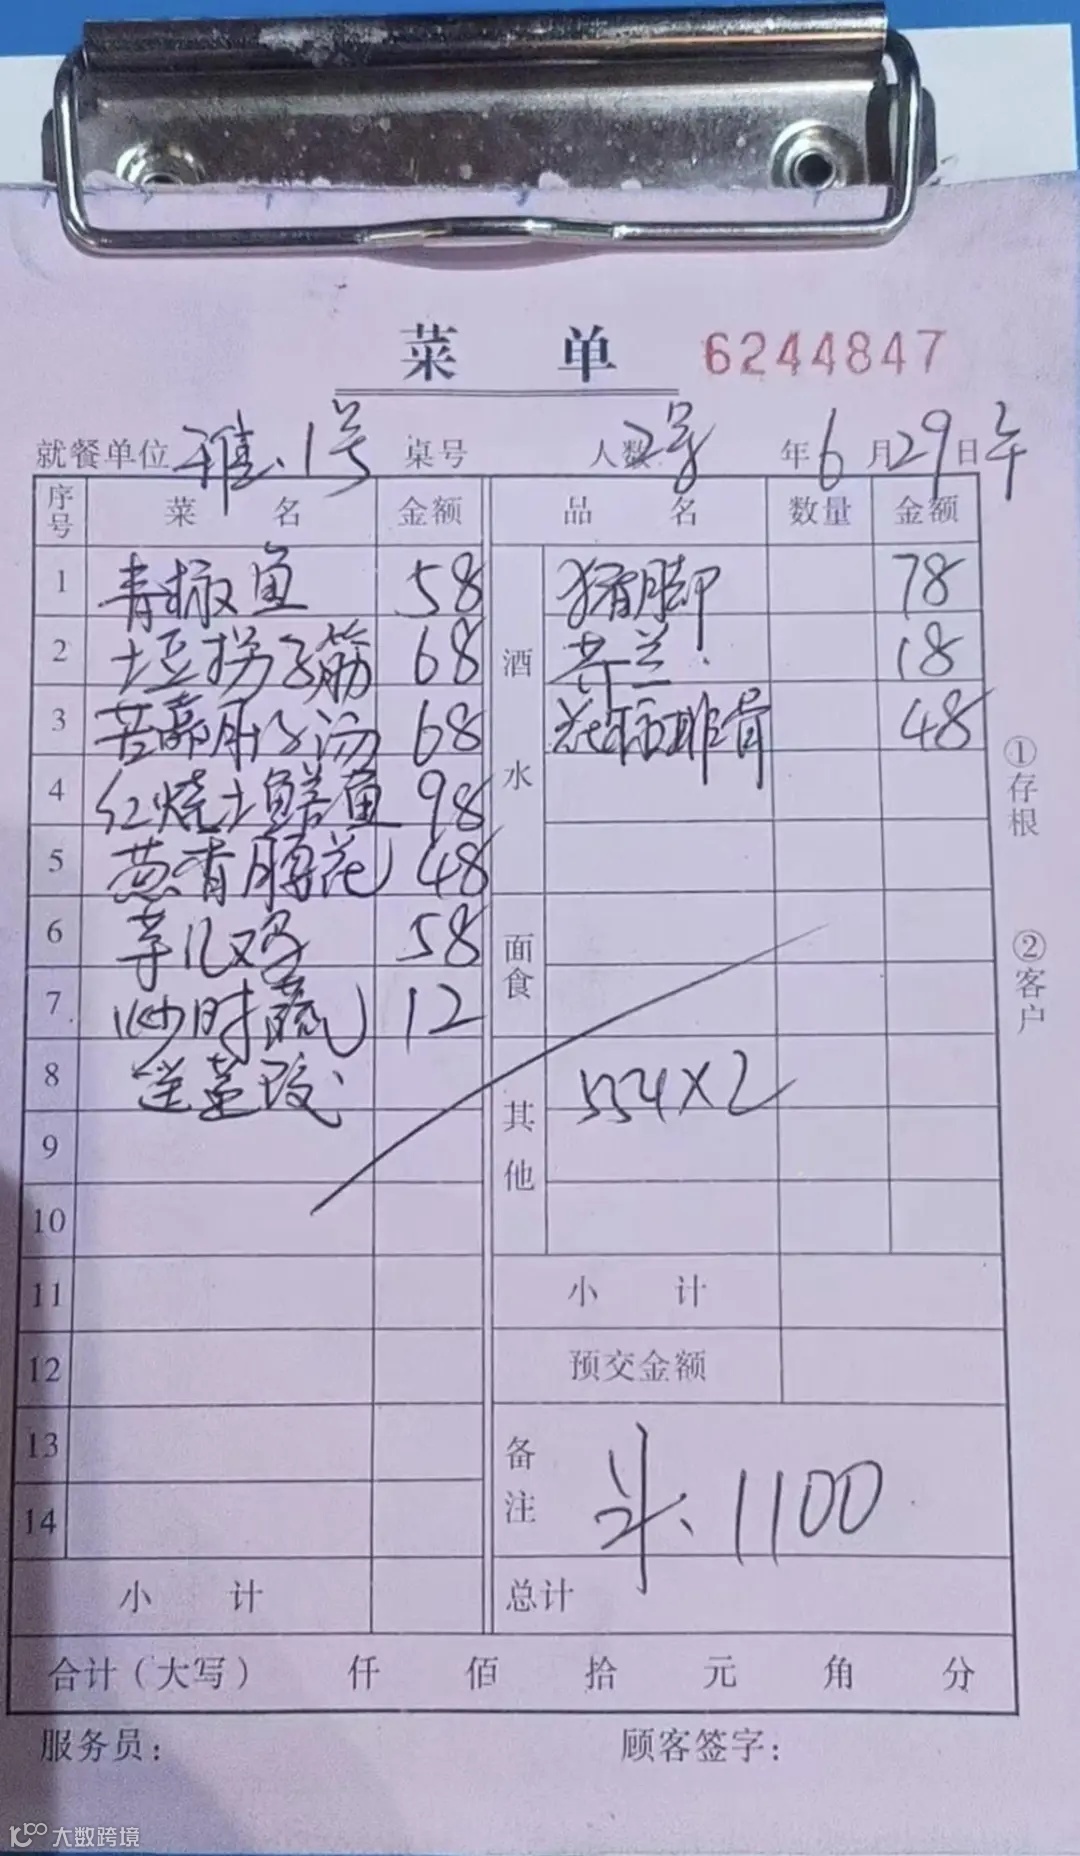 菜 单 6244847
就餐单位 雅.1号 桌号 人数 2号 年6月29日午
序号 菜 名 金额 品 名 数量 金额
1 青椒鱼 58 酒水 猪脚 78
2 土豆拐子筋 68 芥兰. 18
3 苦 肚子汤 68 排骨 48
4 红烧土 鱼 98
5 葱香腰花 48
6 芋儿鸡 58 面食
7 炒时蔬 12
8 554×2 其他
9
10
11 小 计
12 预交金额
13 备注 斗、1100
14
小 计 总计
合计(大写) 仟 佰 拾 元 角 分
服务员: 顾客签字:
①存根
②客户
大数跨境